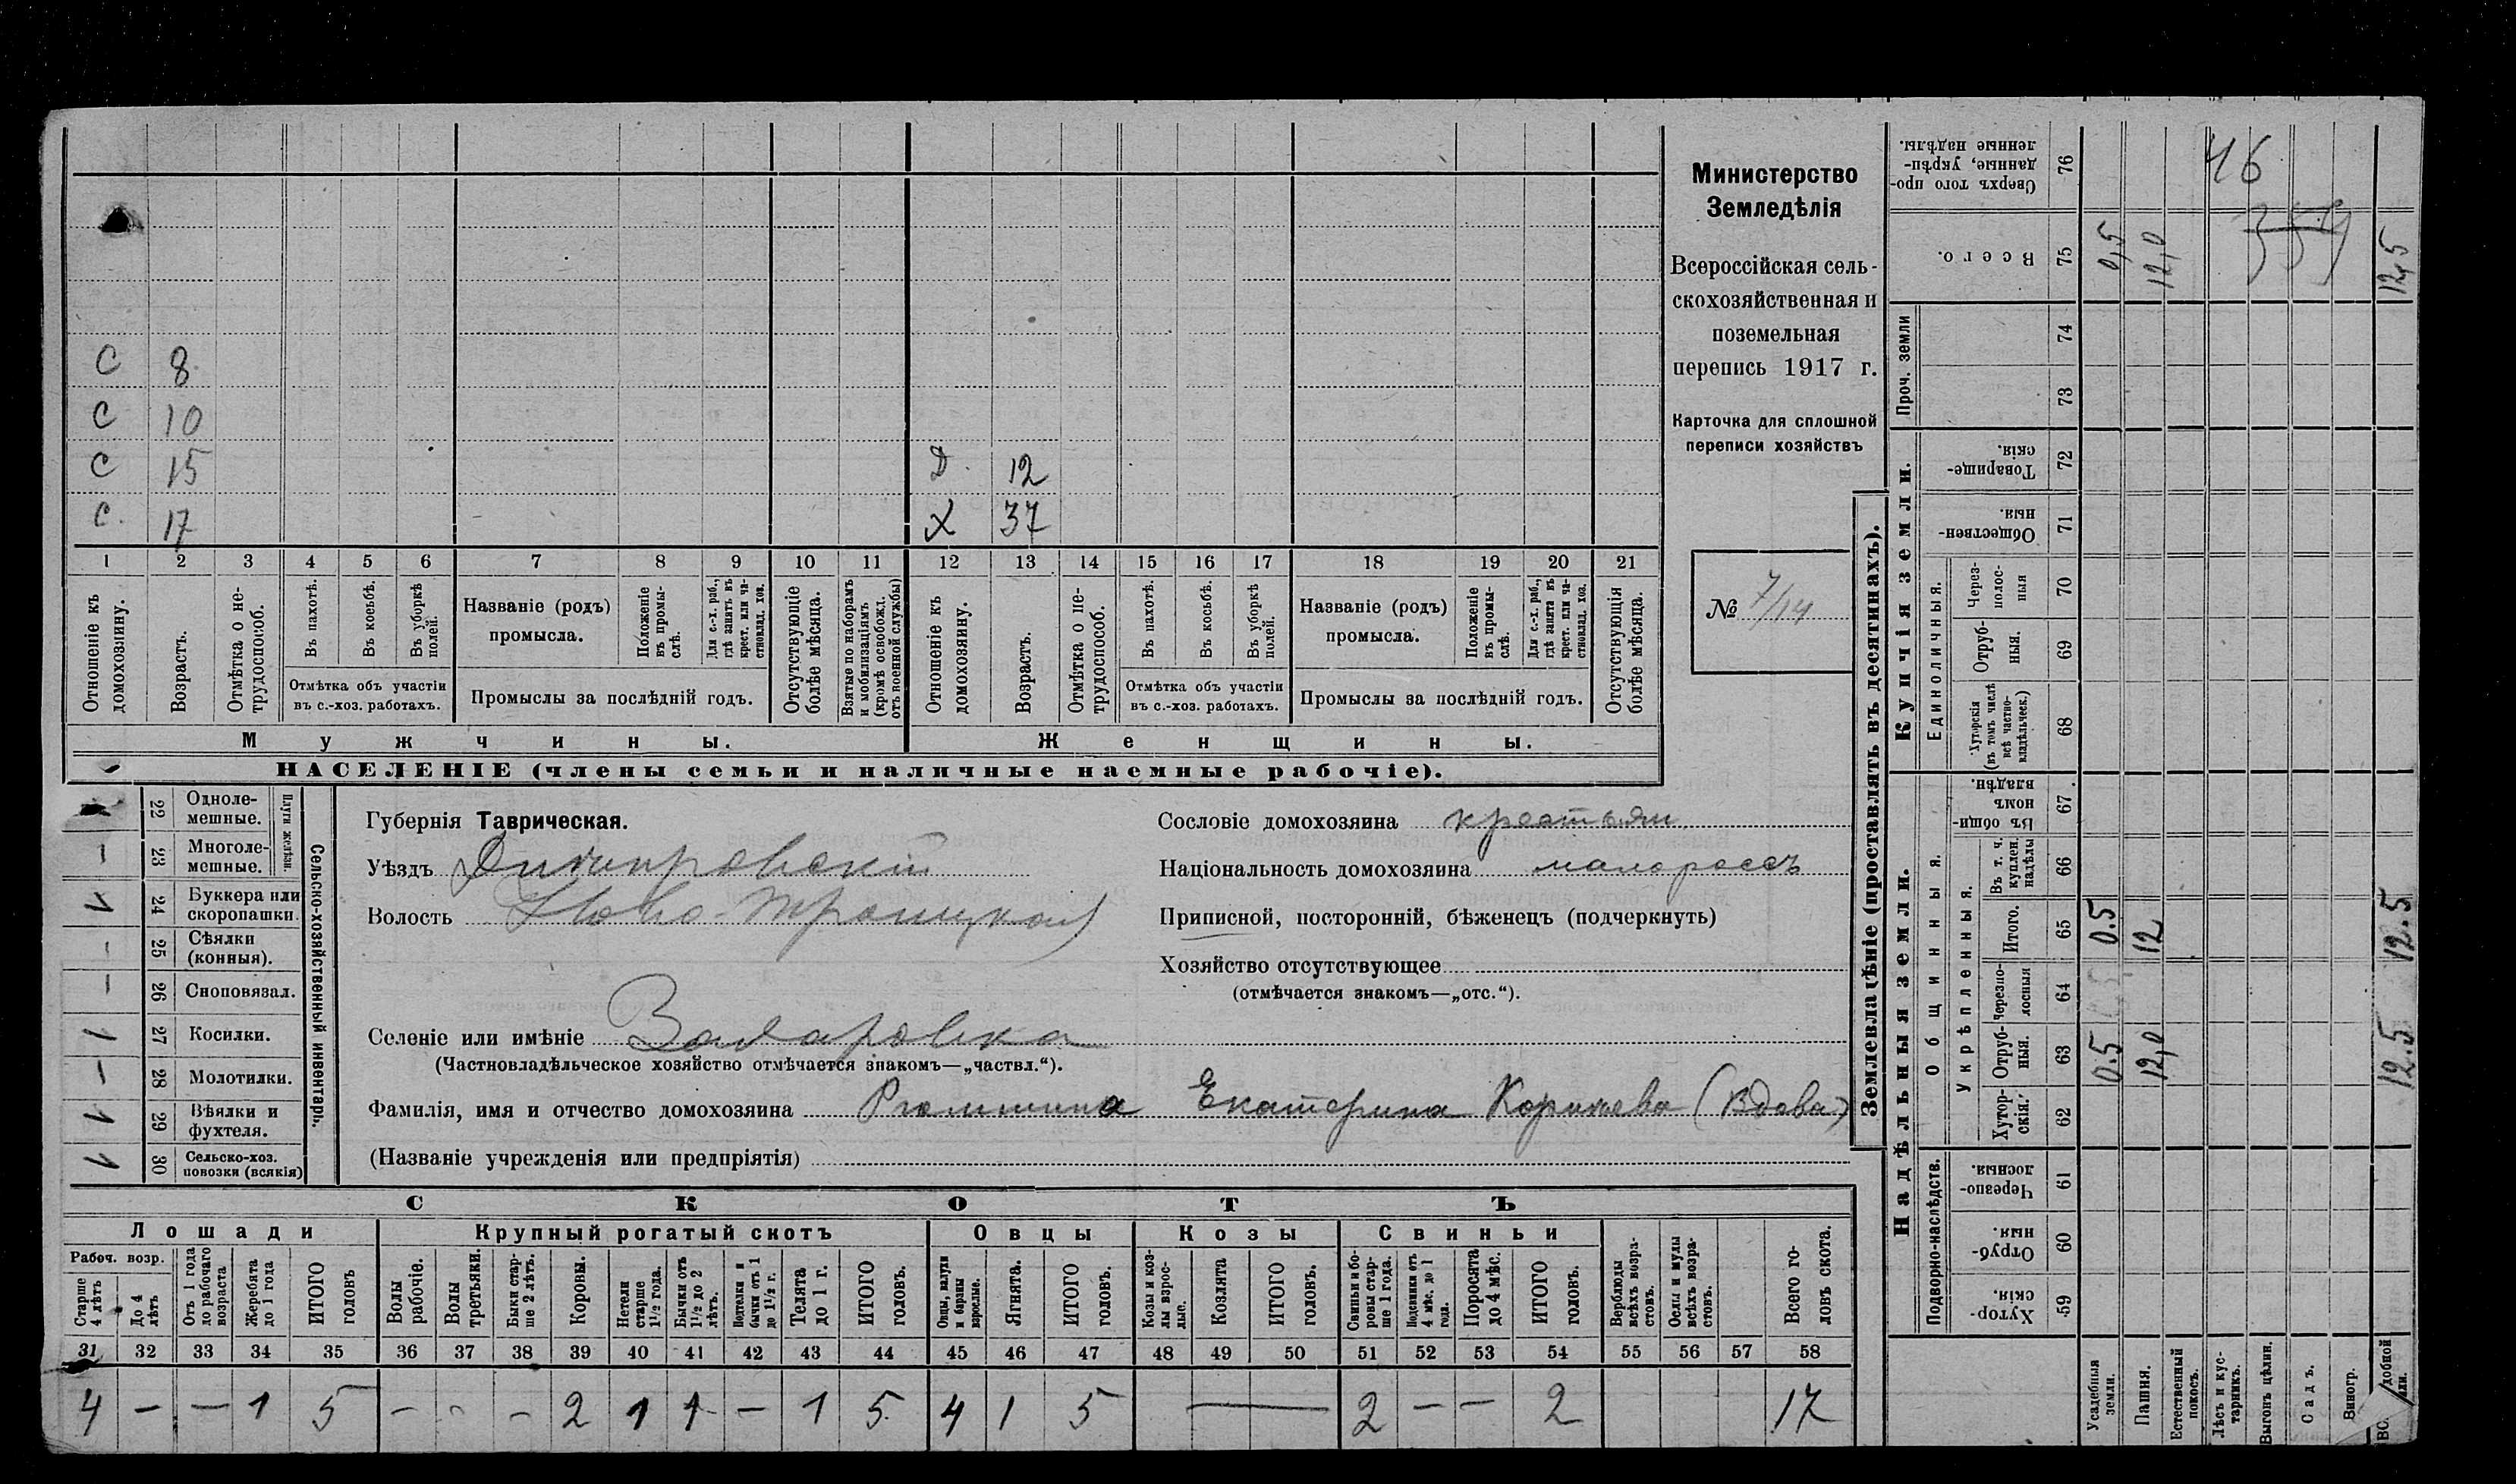 Министерство
Земледѣлія
Всероссійская сель-
скохозяйственная и
поземельная
перепись 1917 г.
Карточка для сплошной
переписи хозяйствъ
№ 7/14
С 8
С 10
С 15 Д. 12
С. 17 Х 37
1 2 3 4 5 6 7 8 9 10 11 12 13 14 15 16 17 18 19 20 21
Отношеніе къ домохозяину.
Возрастъ.
Отмѣтка о не-трудоспособ.
Въ пахотѣ.
Въ косьбѣ.
Въ уборкѣ полей.
Отмѣтка объ участіи
въ с.-хоз. работахъ.
Названіе (родъ)
промысла.
Положеніе въ промы-слѣ.
Для с.-х. раб., гдѣ занятъ въ крест. или ча-стновлад. хоз.
Промыслы за послѣдній годъ.
Отсутствующіе болѣе мѣсяца.
Взятые по наборамъ и мобилизаціямъ (кромѣ освобожд. отъ военной службы)
Отношеніе къ домохозяину.
Возрастъ.
Отмѣтка о не-трудоспособ.
Въ пахотѣ.
Въ косьбѣ.
Въ уборкѣ полей.
Отмѣтка объ участіи
въ с.-хоз. работахъ.
Названіе (родъ)
промысла.
Положеніе въ промы-слѣ.
Для с.-х. раб., гдѣ занята въ крест. или ча-стновлад. хоз.
Промыслы за послѣдній годъ.
Отсутствующія болѣе мѣсяца.
Мужчины. Женщины.
НАСЕЛЕНІЕ (члены семьи и наличные наемные рабочіе).
Сельско-хозяйственный инвентарь.
Плуги желѣзн.
22 Одноле-мешные.
— 23 Многоле-мешные.
V 24 Буккера или скоропашки.
— 25 Сѣялки (конныя).
— 26 Сноповязал.
1 27 Косилки.
— 28 Молотилки.
1 29 Вѣялки и фухтеля.
V 30 Сельско-хоз. повозки (всякія)
Губернія Таврическая.
Уѣздъ Днѣпровскій
Волость Ново-Троицкая
Селеніе или имѣніе
(Частновладѣльческое хозяйство отмѣчается знакомъ—„частвл.“).
Фамилія, имя и отчество домохозяина Екатерина (вдова)
(Названіе учрежденія или предпріятія)
Сословіе домохозяина крестьян
Національность домохозяина малороссъ
Приписной, посторонній, бѣженецъ (подчеркнуть)
Хозяйство отсутствующее
(отмѣчается знакомъ—„отс.“).
СКОТЪ
Лошади Крупный рогатый скотъ Овцы Козы Свиньи
Рабоч. возр.
Старше 4 лѣтъ
До 4 лѣтъ
Отъ 1 года до рабочаго возраста
Жеребята до 1 года
ИТОГО головъ
Волы рабочіе.
Волы третьяки.
Быки стар-ше 2 лѣтъ.
Коровы.
Нетели старше 1½ года.
Бычки отъ 1½ до 2 лѣтъ.
бычки отъ 1 до 1½ г.
Телята до 1 г.
ИТОГО головъ.
Овцы, валухи и бараны взрослые.
Ягнята.
ИТОГО головъ.
Козы и коз-лы взрос-лые.
Козлята
ИТОГО головъ.
Свиньи и бо-ровы стар-ше 1 года.
Подсвинки отъ 4 мѣс. до 1 года.
Поросята до 4 мѣс.
ИТОГО головъ.
Верблюды всѣхъ возра-стовъ.
Ослы и мулы всѣхъ возра-стовъ.
Всего го-ловъ скота.
31 32 33 34 35 36 37 38 39 40 41 42 43 44 45 46 47 48 49 50 51 52 53 54 55 56 57 58
4 — — 1 5 — — — 2 1 1 — 1 5 4 1 5 — 2 — — 2 17
Землевладѣніе (проставлять въ десятинахъ).
Надѣльныя земли.
Купчія земли.
Проч. земли
Подворно-наслѣдств.
Общинныя.
Укрѣпленныя.
Единоличныя.
Сверхъ того про-данные, укрѣп-ленные надѣлы. 76 46
Всего. 75 0,5 12,0 359 12,5
74
73
Товарище-скія. 72
Обществен-ныя. 71
Через-полос-ныя 70
Отруб-ныя. 69
Хуторскія (въ томъ числѣ всѣ частно-владѣльческ.) 68
Въ общи-номъ владѣн. 67
Въ т. ч. куплен. надѣлы 66
Итого. 65 0.5 12 12.5
Черезпо-лосныя 64
Отруб-ныя. 63 0.5 12,0 12.5
Хутор-скія. 62
Черезпо-лосныя. 61
Отруб-ныя. 60
Хутор-скія. 59
Усадебныя земли.
Пашня.
Естественный покосъ.
Лѣсъ и кус-тарникъ.
Выгонъ цѣлин.
Садъ.
Виногр.